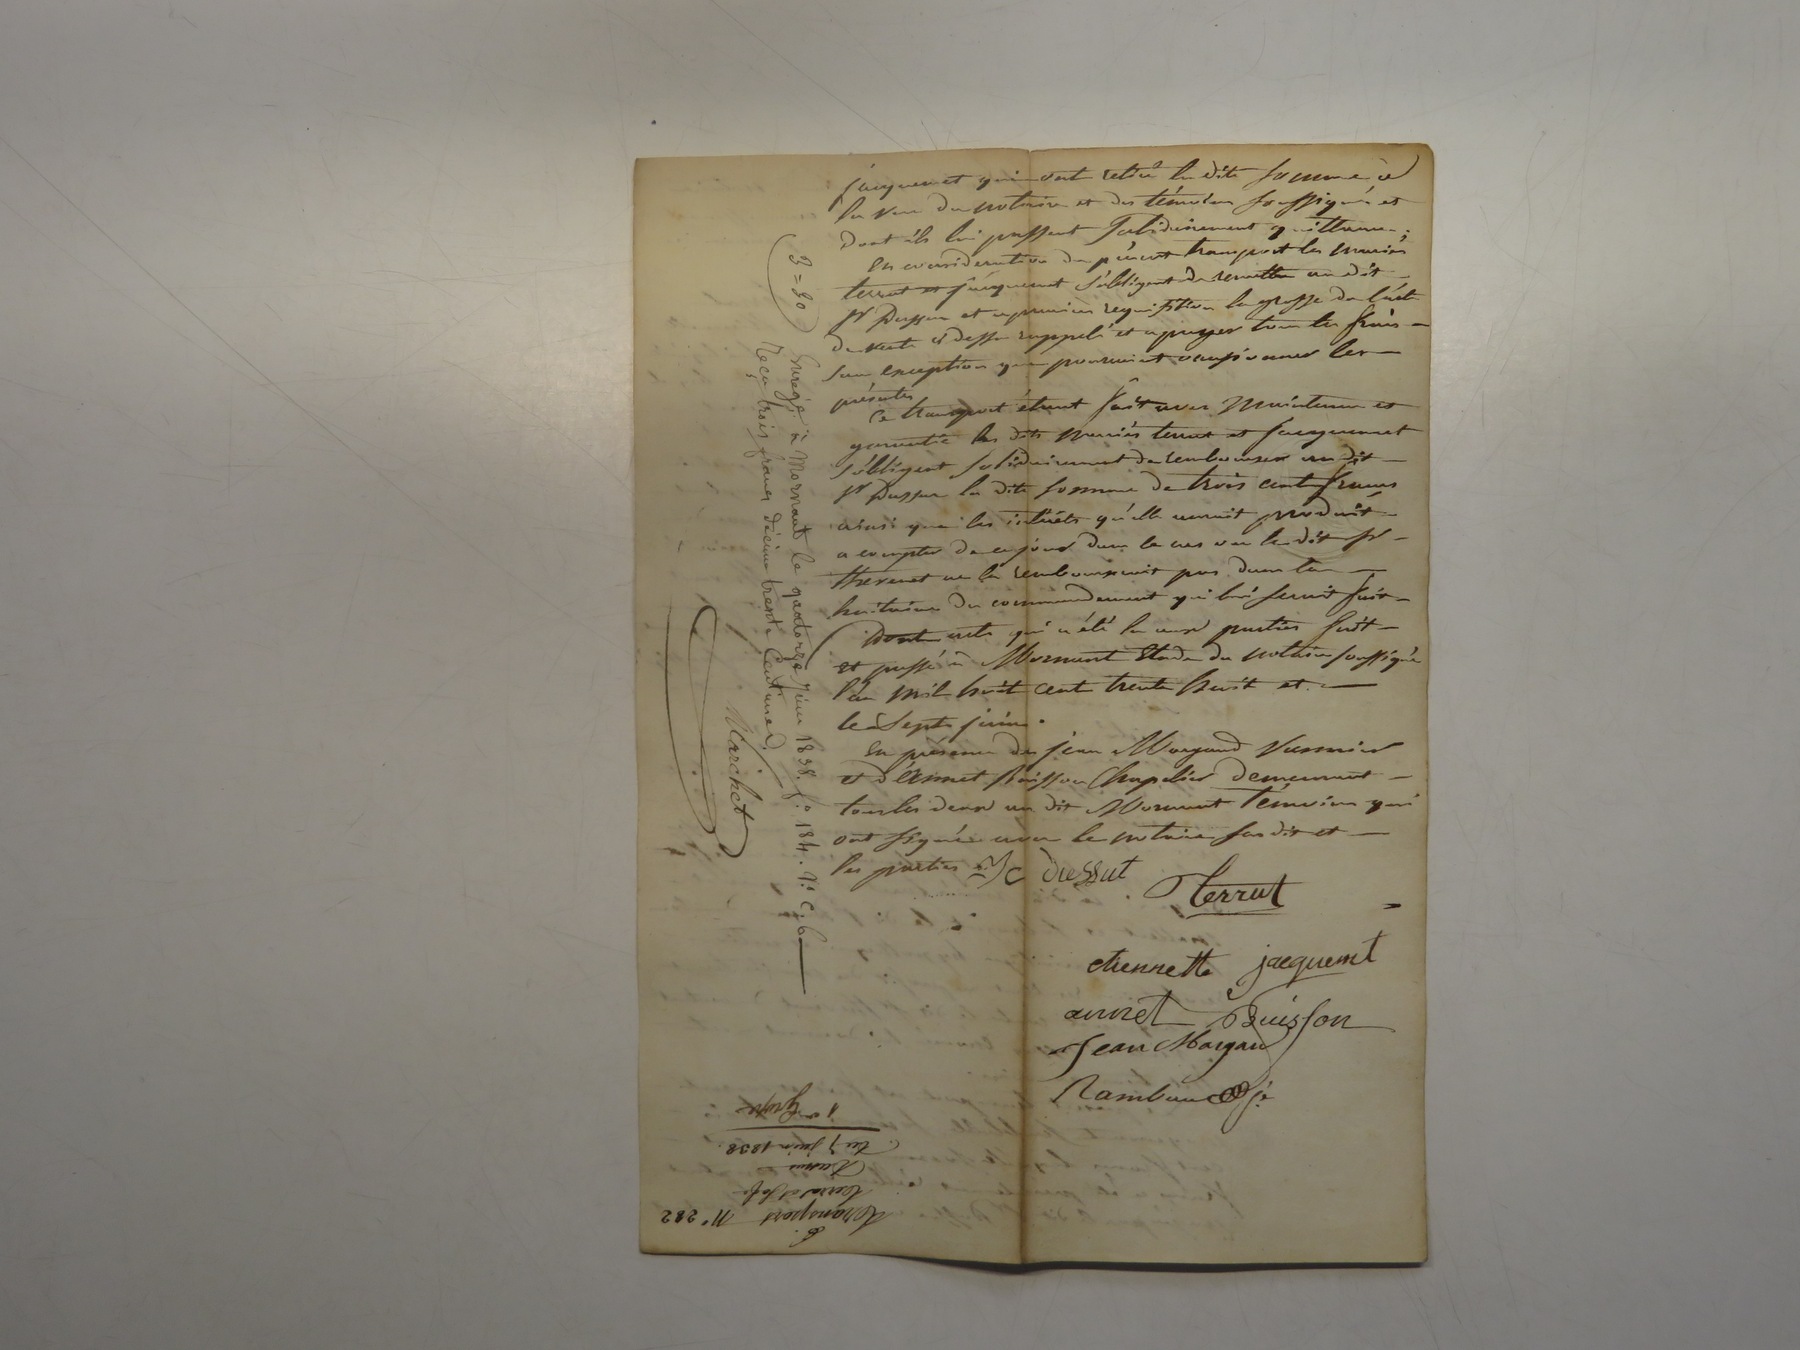 jacquemet qui ont retiré la dite somme à
la vue du notaire et des témoins soussignés et
dont ils lui passent solidairement quittance;
En considération du présent transport les mariés
terrat et jacquemet s'obligent de remettre au dit
Sr et a première requisition la grosse de l'acte
de vente ci dessu rappelé et a payer tous les frais
sans exception que pourraient occasionner les
présentes
Ce transport étant fait avec maintenue et
garantie les dits mariés terrat et jacquemet
s'obligent solidairement de rembourser au dit
Sr la dite somme de trois cent francs
ainsi que les intérêts qu'elle aurait produit
a compter de ce jour dans le cas ou le dit Sr
ne la rembourserait pas dans la
huitaine du commandement qui lui serait fait
Dont acte qui a été lu aux parties fait
et passé à Mornant Etude du notaire soussigné
l'an mil huit cent trente huit et
le Sept juin.
En présence de jean Margand
et d'annet Buisson Chapelier demeurant
tous les deux au dit Mornant témoins qui
ont signé avec le notaire susdit et
les parties
terrat
etiennette jacquemt
annet Buisson
Jean Margan
3=30
Enregé à Mornant le quatorze juin 1838. fo 184. Vo C. 6
Reçu trois francs décime trente Centimes.
Marchet
No 282
transport
terrat et
Du 7 juin 1838.
1 en grosse